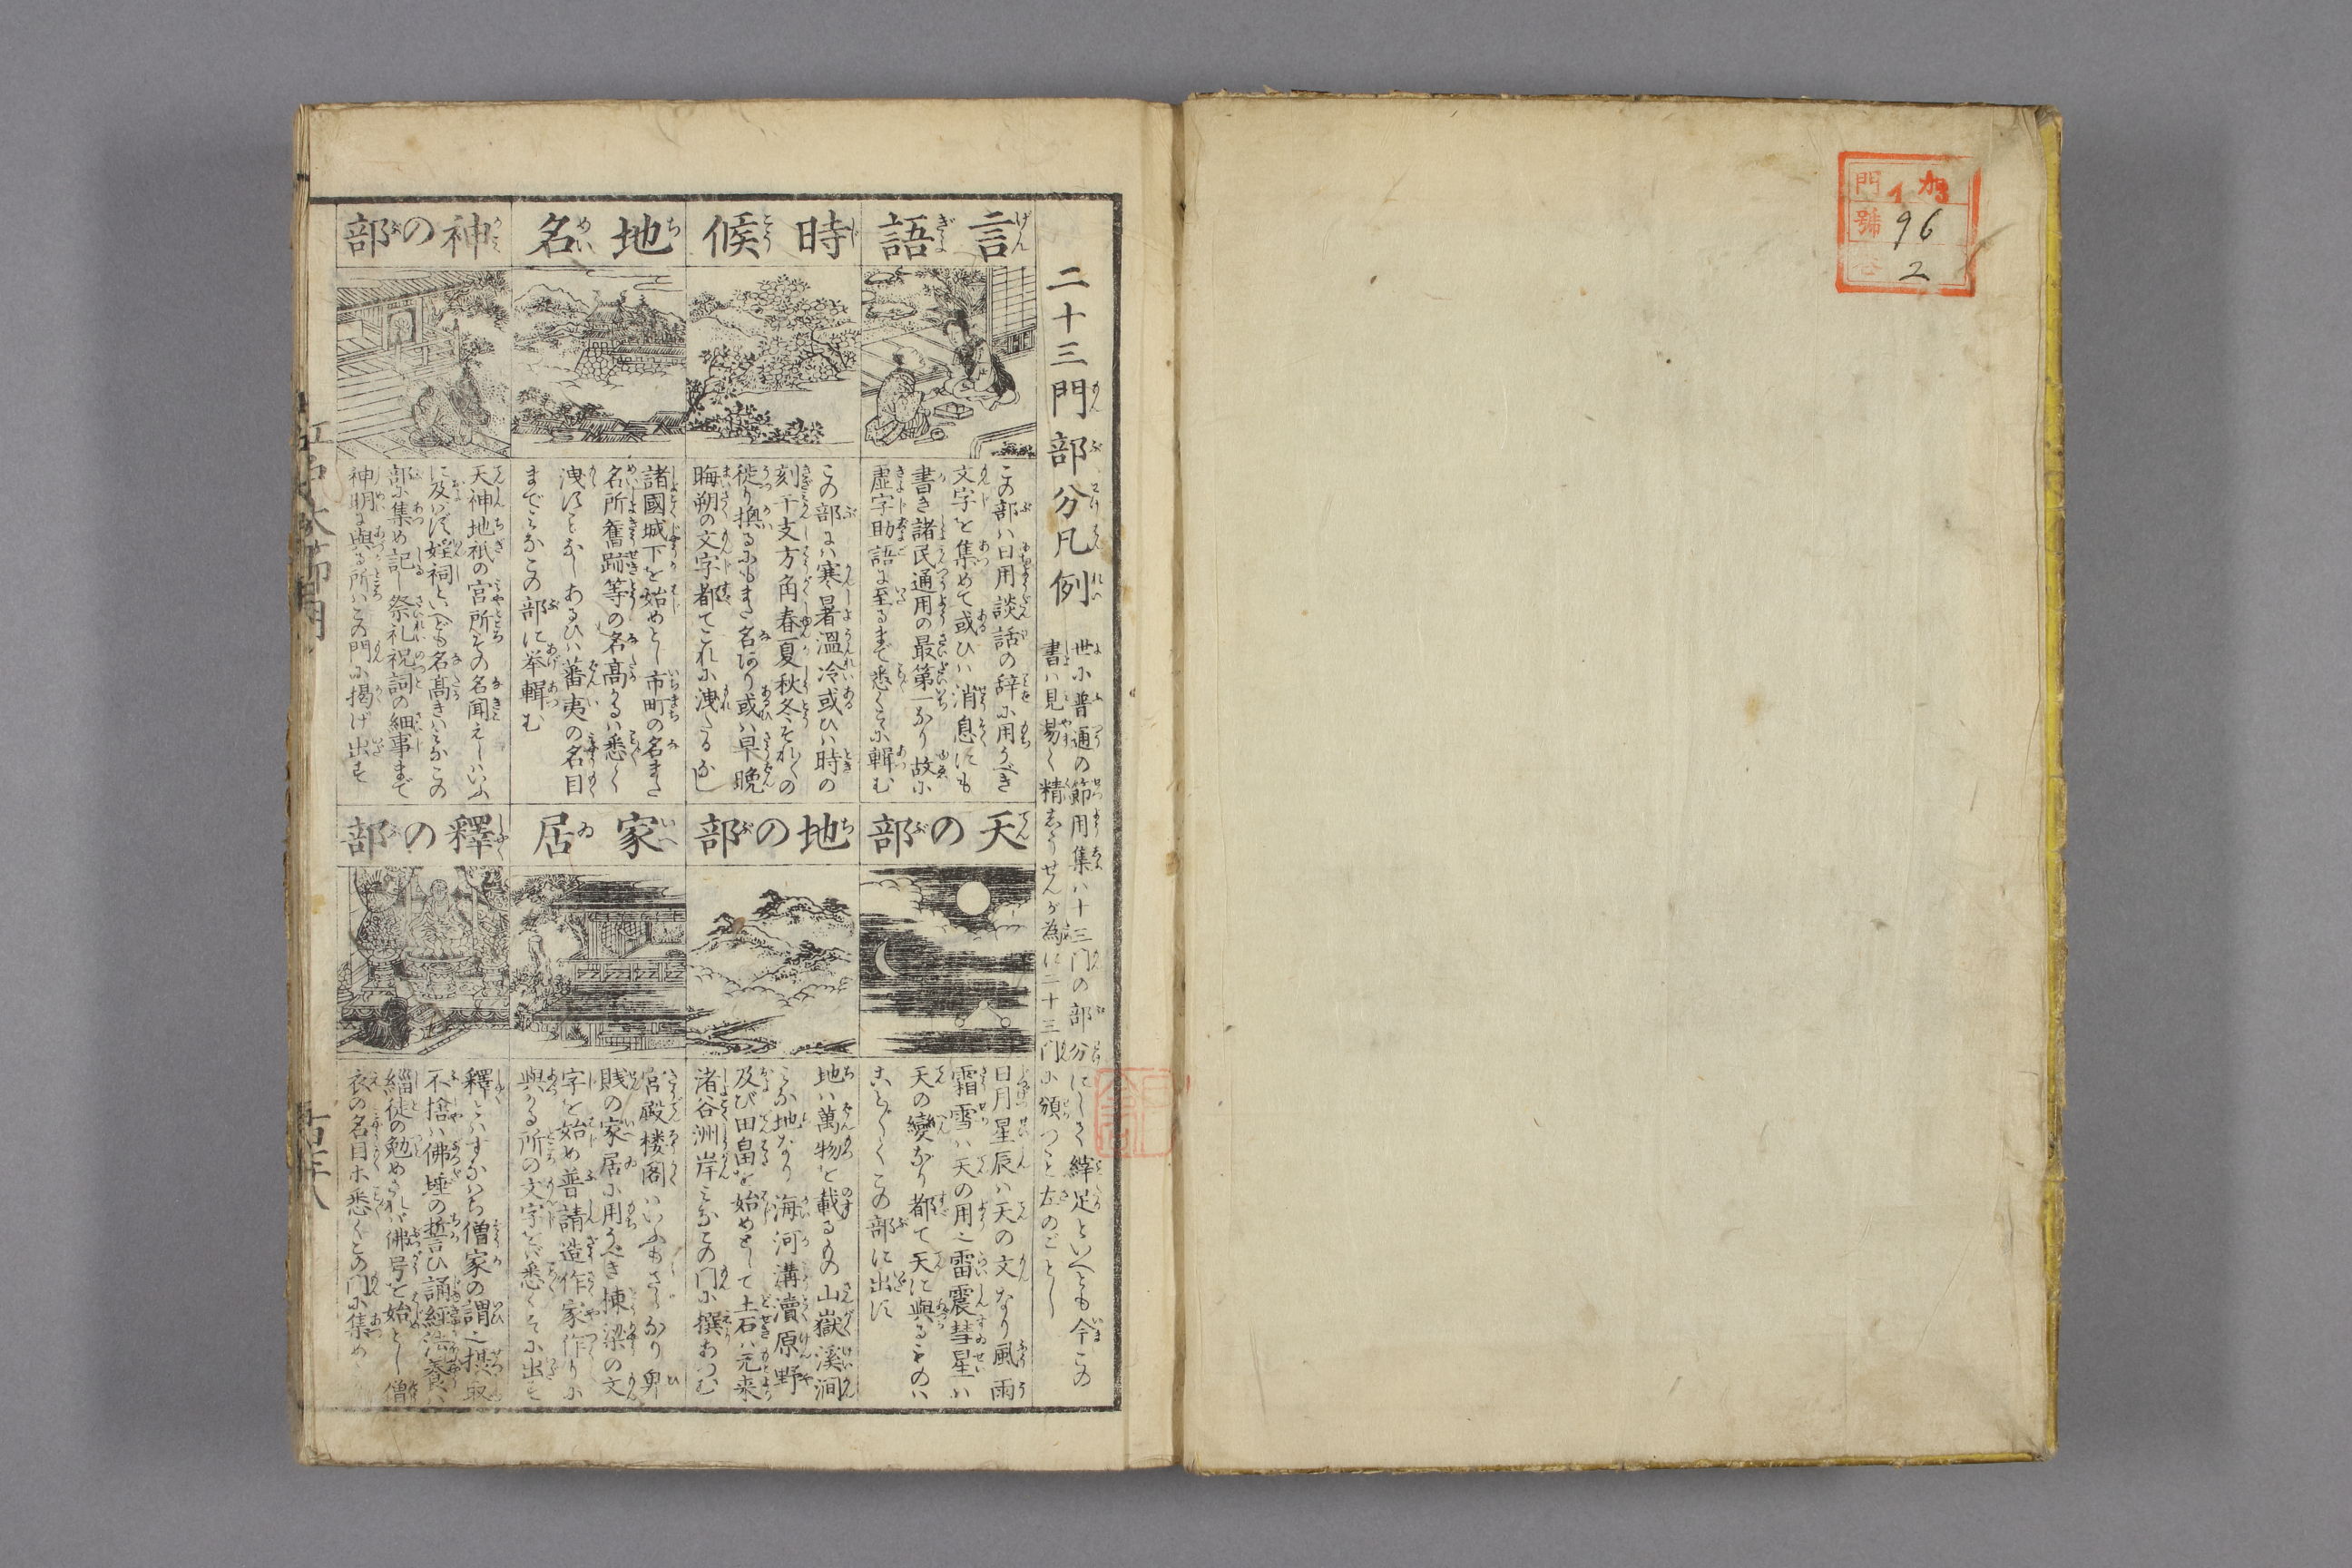 門 イ 加3
號 96
2
二十三門部分凡例
世に普通の節用集ハ十三门の部分にしく縡足といへとも今この
書ハ見易く精しうせんが為に二十三门に頒つと左のごとし
言語
この部ハ日用談話の辞に用うべき
文字を集めて或ひハ消息にも
書き諸民通用の最第一なり故に
虚字助語に至るまで悉くこに輯む
時候
この部にハ寒暑温冷或ひハ時の
刻干支方角春夏秋冬それ〳〵の
徙り換るにもまた名あり或ハ早晩
晦朔の文字都てこれに洩るなし
地名
諸國城下を始めとし市町の名また
名所舊跡等の名高かるハ悉く
洩すことなしあるひハ蕃夷の名目
までみなこの部に挙輯む
神の部
天神地祇の宮所その名聞えしハいふ
に及ハず婬祠といへども名高きハみなこの
部に集め記し祭礼祝詞の細事まで
神明に與る所ハこの門に掲げ出せ
天の部
日月星辰ハ天の文なり風雨
霜雪ハ天の用之雷震彗星ハ
天の變なり都て天に與るものハ
こと〴〵くこの部に出す
地の部
地ハ萬物を載るもの山嶽溪澗
みな地なり海河溝瀆原野
及び田畠を始めとして土石ハ元来
渚谷洲岸みなこの门に撰あつむ
家居
宮殿楼阁ハいふもさらなり卑
賎の家居に用うべき棟梁の文
字を始め普請造作家作りに
與かる所の文字をバ悉くこに出せ
釋の部
釋とハすなハち僧家の謂之摂取
不捨ハ佛陲の誓ひ誦經法養ハ
緇徒の勉めされバ佛号を始とし僧
衣の名目ホ悉くこの门に集め
大節用